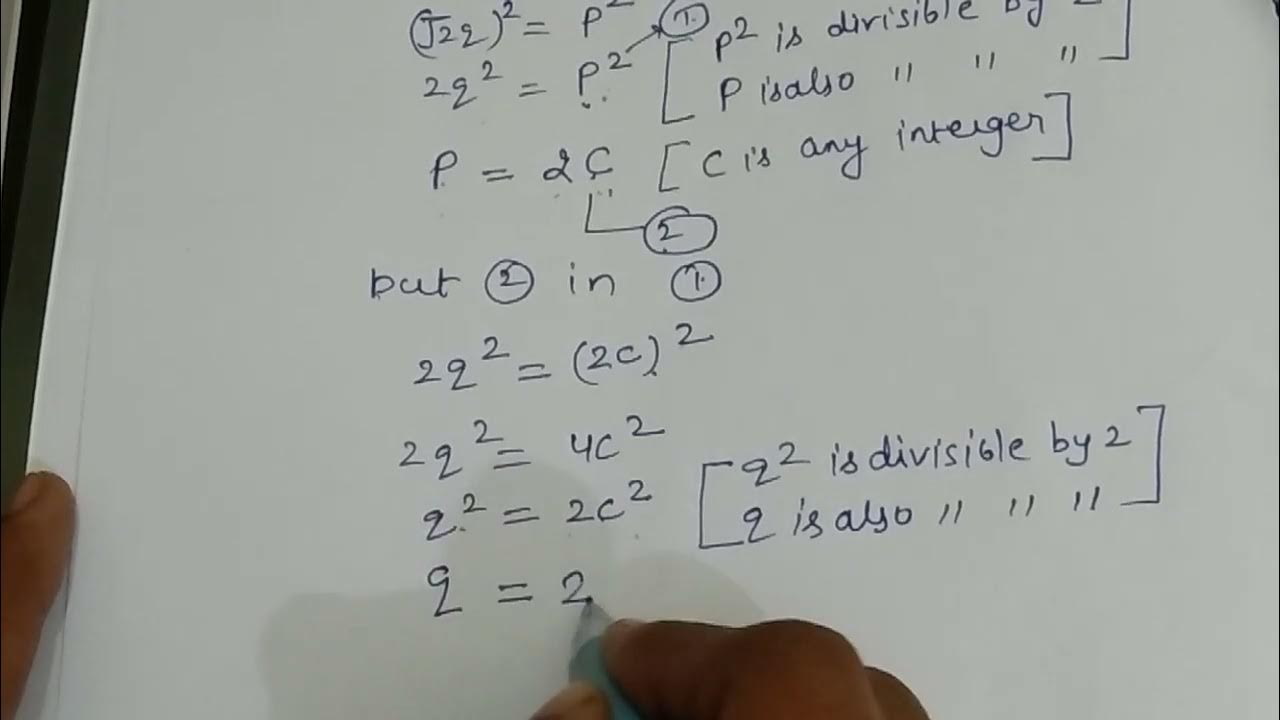 (√2q)² = P² ① [ P² is divisible by 2
2q² = P² P is also " " " ]
P = 2C [ C is any interger ]
②
but ② in ①
2q² = (2C)²
2q² = 4C²
q² = 2C² [ q² is divisible by 2
q is also " " " ]
q = 2